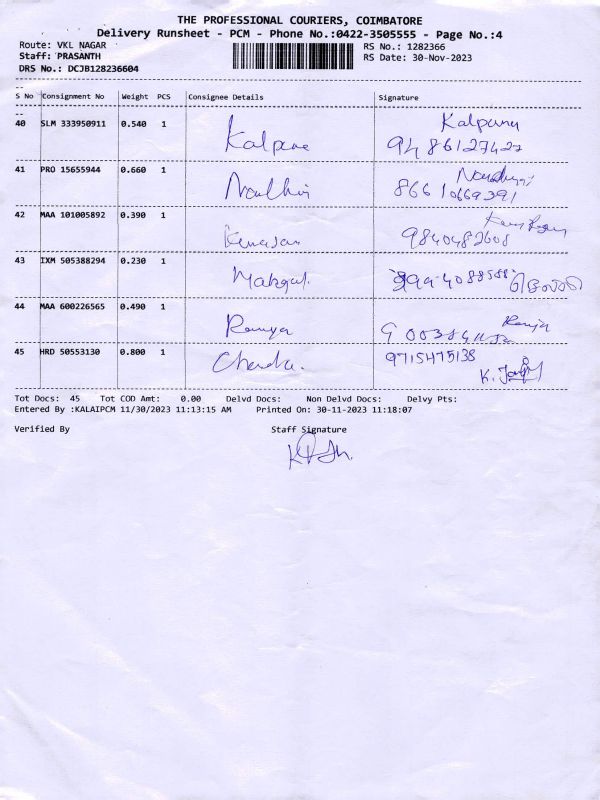 THE PROFESSIONAL COURIERS, COIMBATORE
Delivery Runsheet - PCM - Phone No.:0422-3505555 - Page No.:4
Route: VKL NAGAR RS No.: 1282366
Staff: PRASANTH RS Date: 30-Nov-2023
DRS No.: DCJB128236604
S No Consignment No Weight PCS Consignee Details Signature
40 SLM 333950911 0.540 1 Kalpana Kalpana
94 86127427
41 PRO 15655944 0.660 1
866 10669391
42 MAA 101005892 0.390 1
9840482608
43 IXM 505388294 0.230 1
44 MAA 600226565 0.490 1 Ramya Ramya
45 HRD 50553130 0.800 1 Chandra. 9715475138
Tot Docs: 45 Tot COD Amt: 0.00 Delvd Docs: Non Delvd Docs: Delvy Pts:
Entered By :KALAIPCM 11/30/2023 11:13:15 AM Printed On: 30-11-2023 11:18:07
Verified By Staff Signature